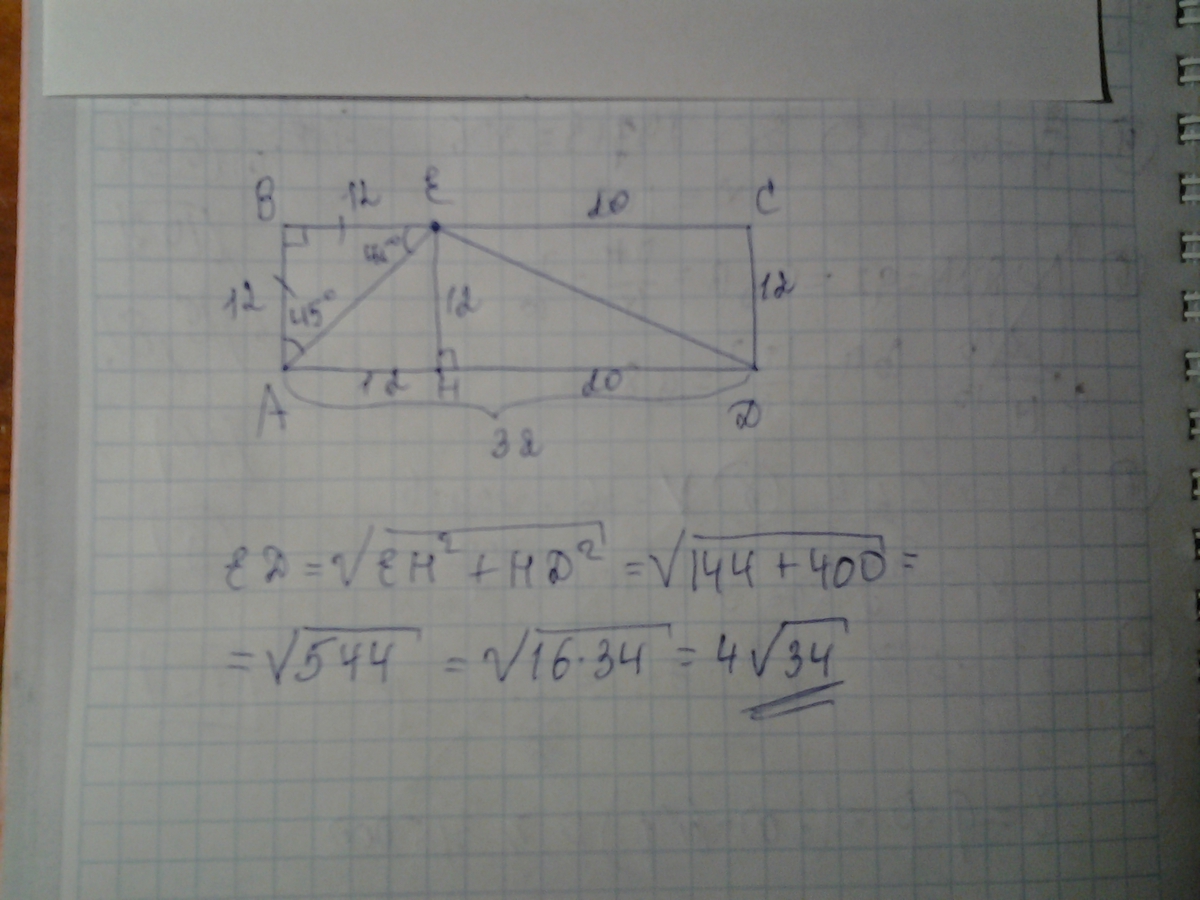 B 12 E 20 C
45°
12 45° 12 12
A 12 H 20 D
32
ED = √EH² + HD² = √144 + 400 =
= √544 = √16·34 = 4√34